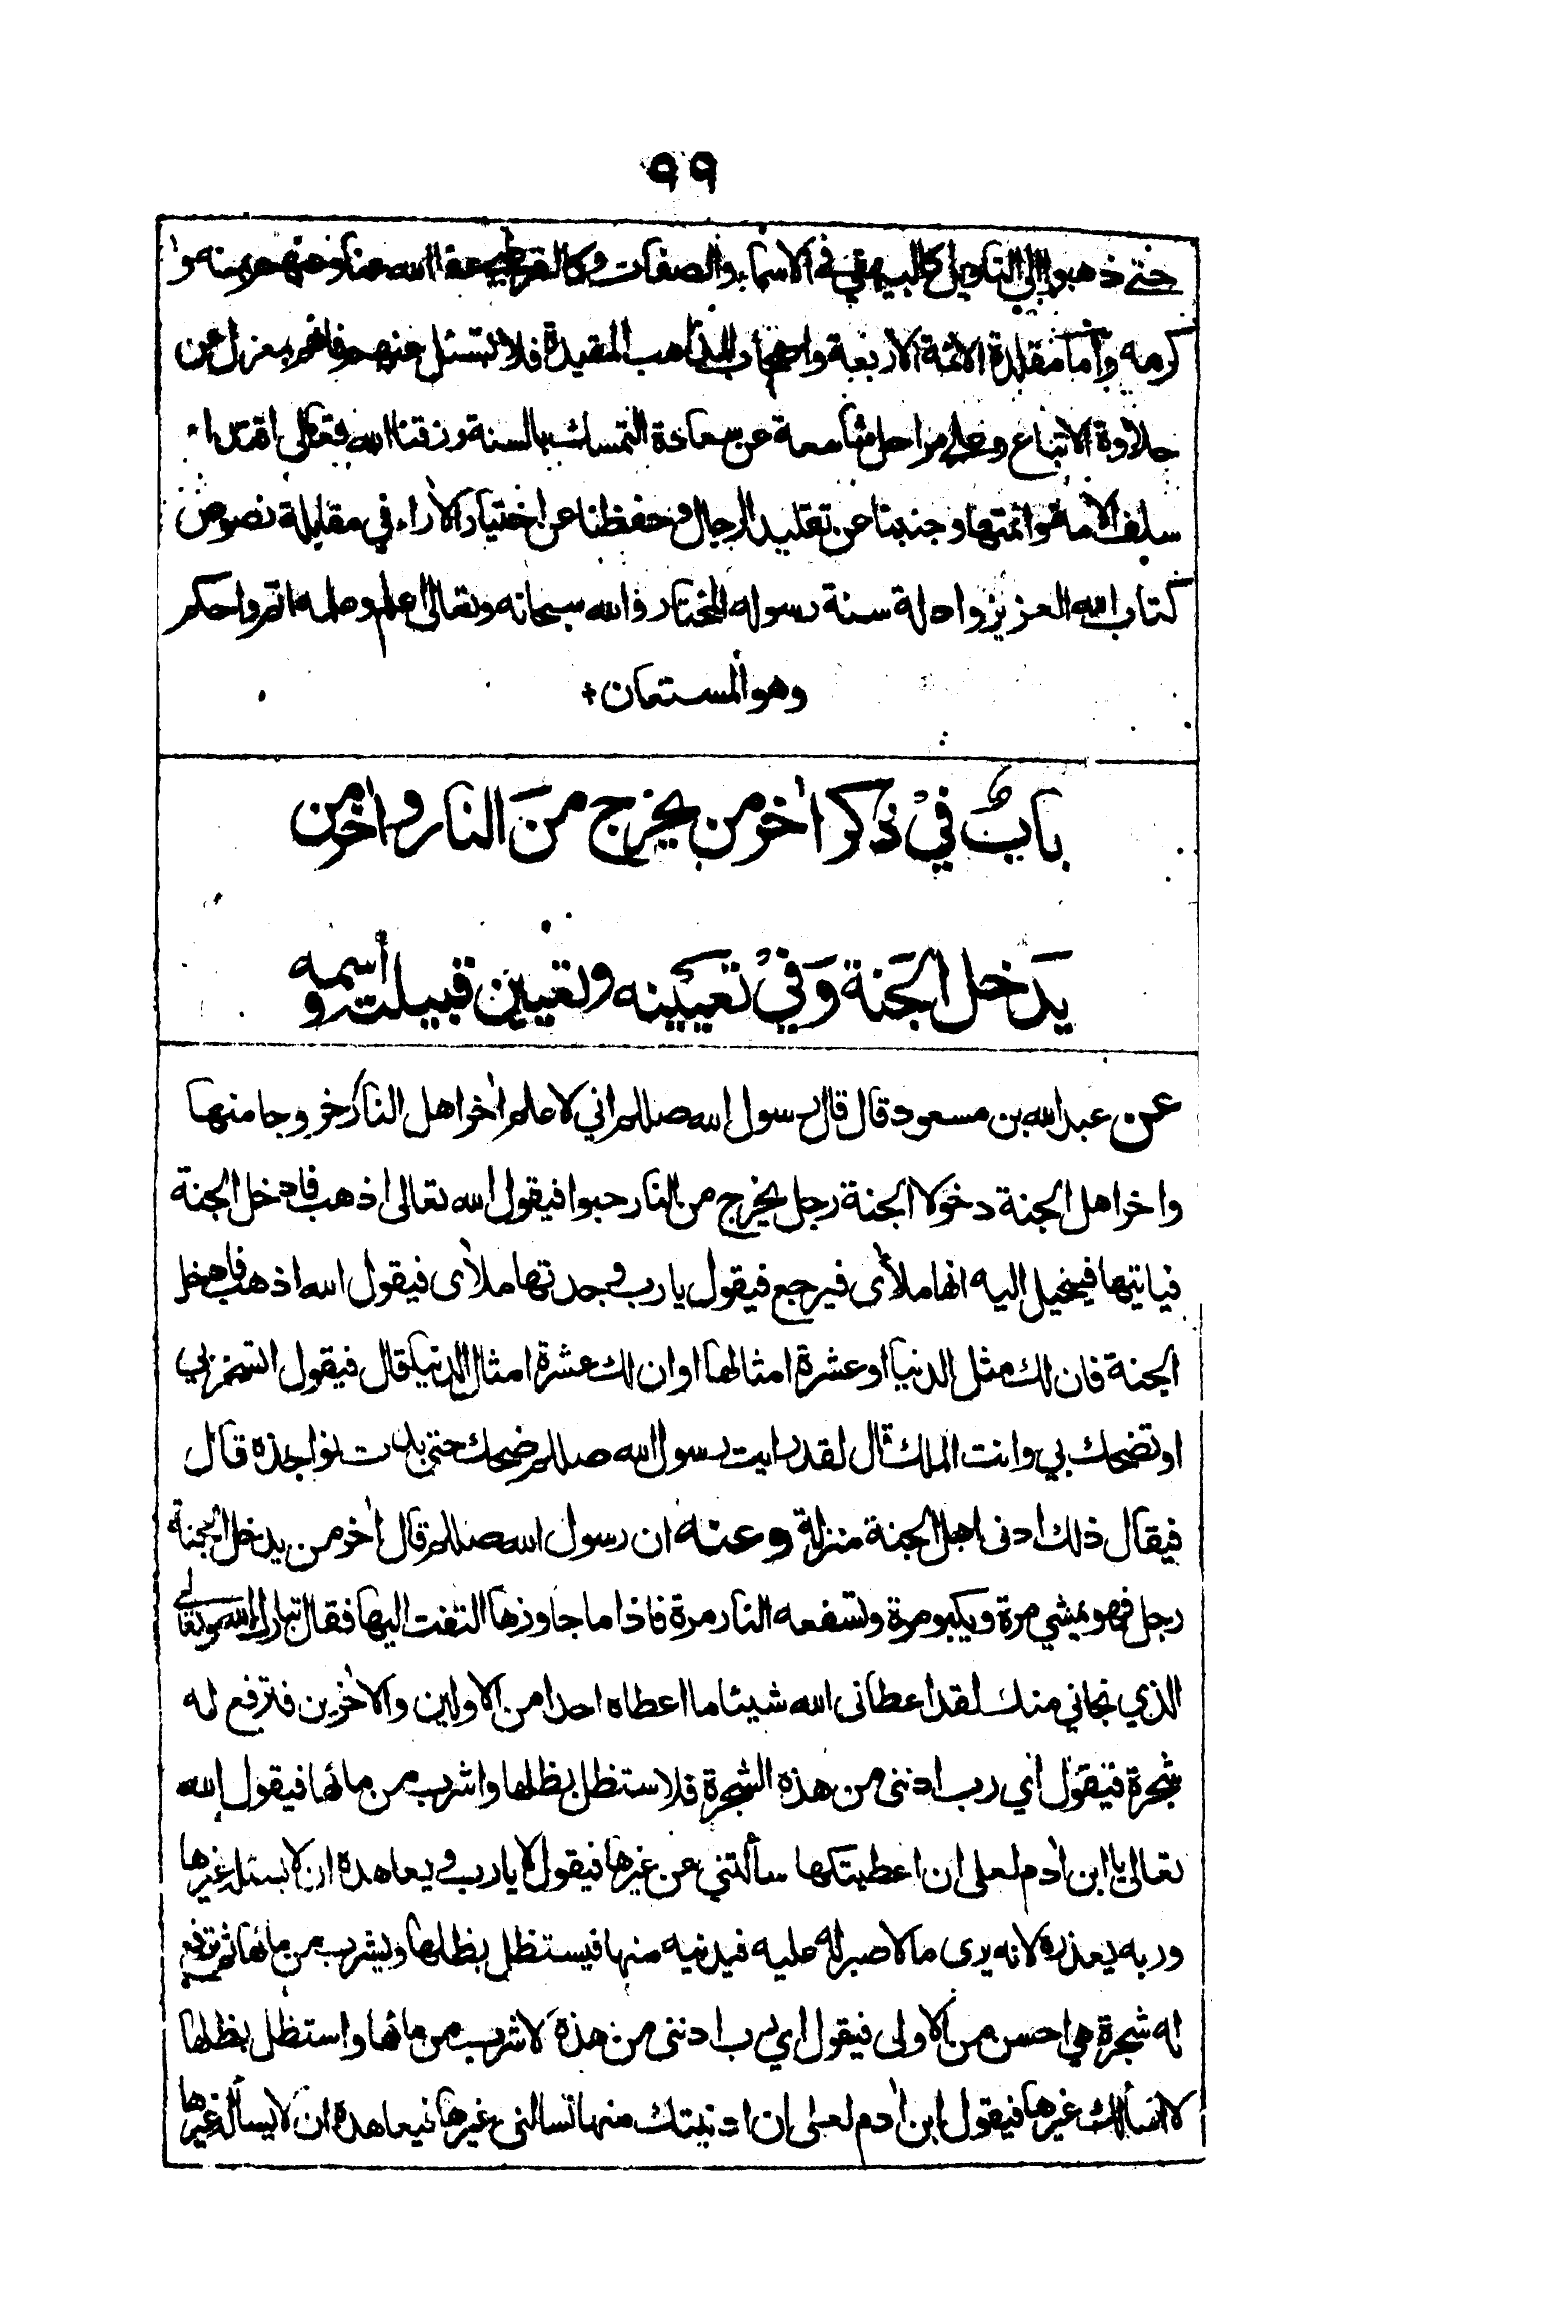 ٩٩
حتى ذهبوا الى التاويل كالبيهقي في الاسماء والصفات وكالقرطبي عفا الله عنا وعنهم بمنه و
كرمه وأما مقلدة الائمة الاربعة واصحاب المذاهب المقيدة فلا تسئل عنهم فانهم بمعزل عن
حلاوة الاتباع وعلى مراحل شاسعة عن سعادة التمسك بالسنة رزقنا الله تعالى اقتداء
سلف الأمة وائمتها وجنبنا عن تقليد الرجال وحفظنا عن اختيار الاراء في مقابلة نصوص
كتاب الله العزيز وادلة سنة رسوله المختار والله سبحانه وتعالى اعلم وعلمه اتم واحكم
وهو المستعان +
بابٌ فيْ ذكر اٰخر من يخرج منَ النار واٰخر من
يَدخل الجَنة وَفيْ تعيينه وتعيين قبيلته واسمه
عن عبد الله بن مسعود قال قال رسول الله صللم اني لاعلم اٰخر اهل النار خروجا منها
واخر اهل الجنة دخولا الجنة رجل يخرج من النار حبوا فيقول الله تعالى اذهب فادخل الجنة
فياتيها فيخيل اليه انها ملأى فيرجع فيقول يا رب وجدتها ملأى فيقول الله اذهب فادخل
الجنة فان لك مثل الدنيا او عشرة امثالها او ان لك عشرة امثال الدنيا قال فيقول اتسخر بي
او تضحك بي وانت الملك قال لقد رايت رسول الله صللم ضحك حتى بدت نواجذه قال
فيقال ذلك ادنى اهل الجنة منزلة وعنه ان رسول الله صللم قال اٰخر من يدخل الجنة
رجل فهو يمشي مرة ويكبو مرة وتسفعه النار مرة فاذا ما جاوزها التفت اليها فقال تبارك الله وتعالى
الذي نجاني منك لقد اعطانى الله شيئا ما اعطاه احدا من الاولين والاٰخرين فترفع له
شجرة فيقول اي رب ادننى من هذه الشجرة فلاستظل بظلها واشرب من مائها فيقول الله
تعالى يا ابن اٰدم لعلى ان اعطيتكها سألتني عن غيرها فيقول لا يا رب و يعاهده ان لا يسئله غيرها
وربه يعذره لانه يرى ما لا صبر له عليه فيدنيه منها فيستظل بظلها ويشرب من مائها ثم ترفع
له شجرة هي احسن من الاولى فيقول اي رب ادننى من هذه لاشرب من مائها واستظل بظلها
لا اسألك غيرها فيقول ابن اٰدم لعلى ان ادنيتك منها تسالنى غيرها فيعاهده ان لا يسأله غيرها